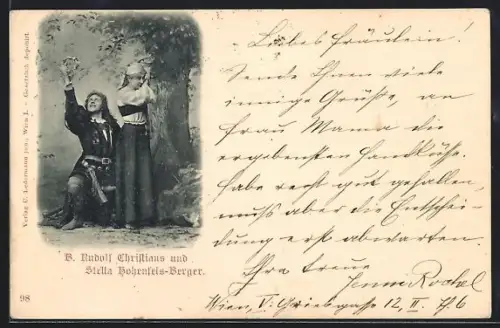 Verlag C. Ledermann jun., Wien I. – Gesetzlich deponirt.
B. Rudolf Christians und
Stella Hohenfels-Berger.
98
Liebes Fräulein!
Sende Ihnen viele
innige Grüße, an
Frau Mama die
ergebensten Handküße.
Habe recht gut gefallen,
muß aber die Entschei-
dung erst abwarten.
Ihre treue
Wien, V. 12, II. Th. 6